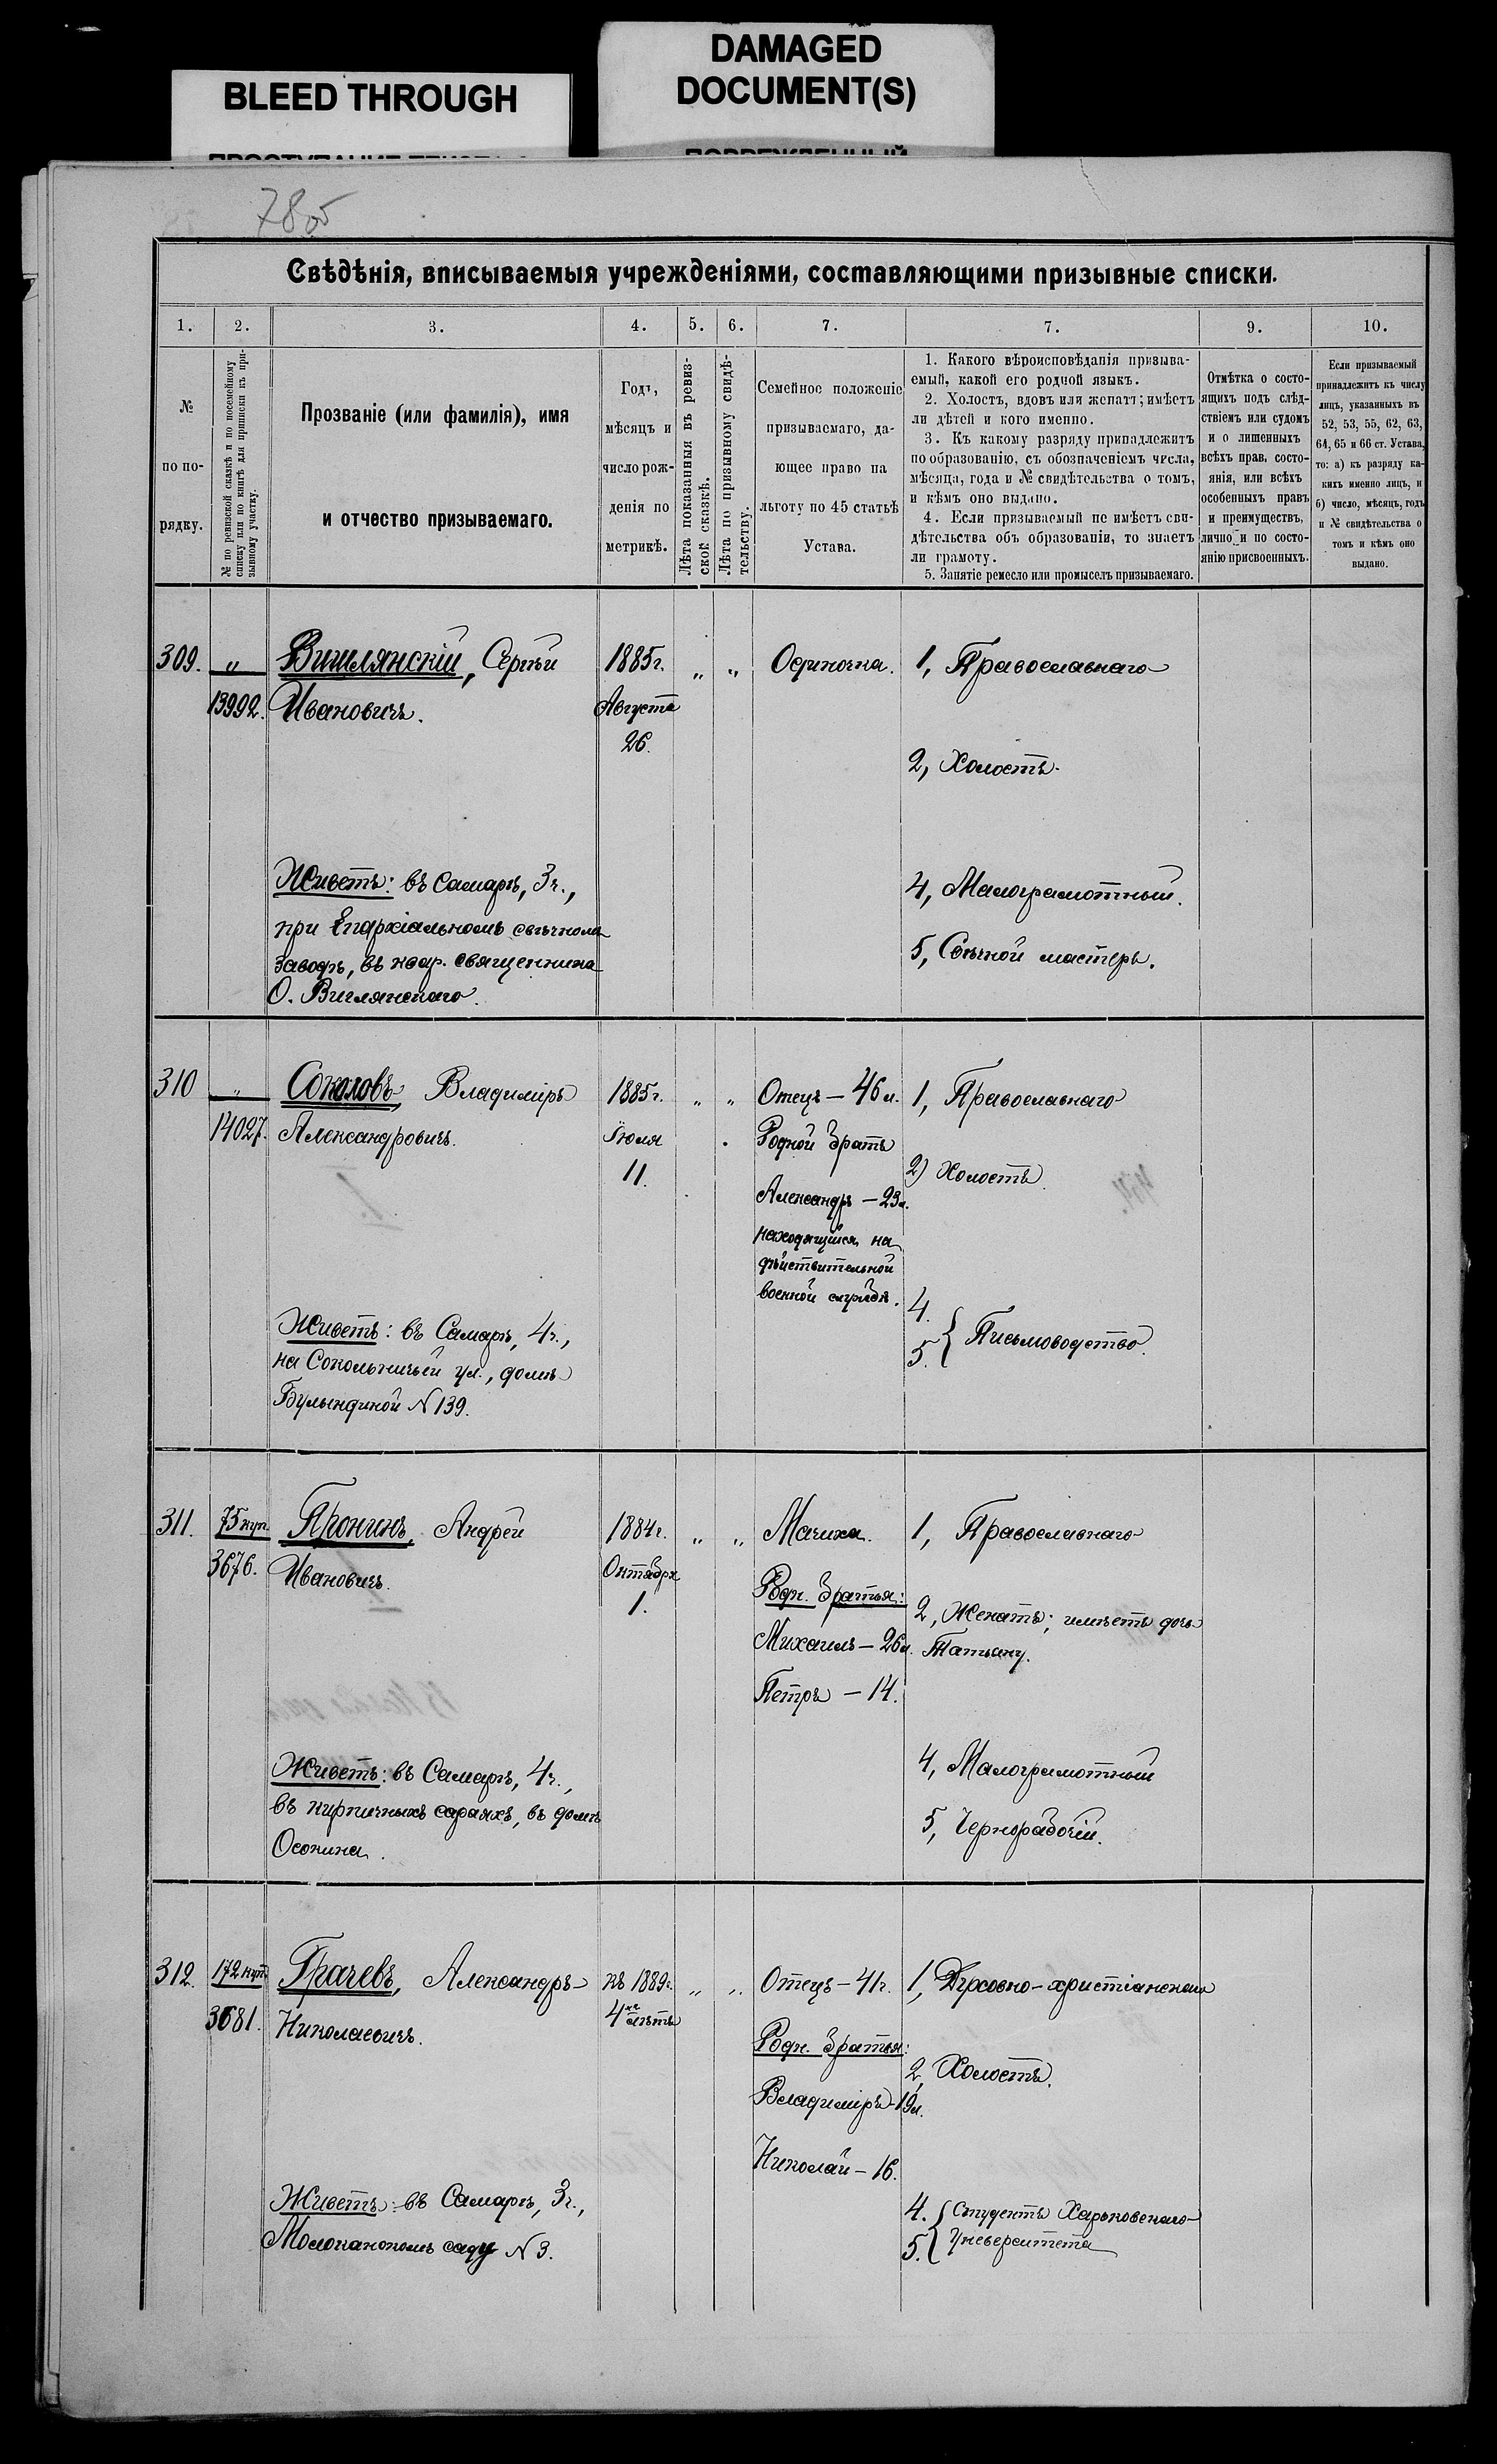 BLEED THROUGH
DAMAGED
DOCUMENT(S)
78об
Свѣдѣнія, вписываемыя учрежденіями, составляющими призывные списки.
1. 2. 3. 4. 5. 6. 7. 7. 9. 10.
№
по по-
рядку.
№ по ревизской сказкѣ и по посемейному
списку или по книгѣ для приписки къ при-
зывному участку.
Прозваніе (или фамилія), имя
и отчество призываемаго.
Годъ,
мѣсяцъ и
число рож-
денія по
метрикѣ.
Лѣта показанныя въ ревиз-
ской сказкѣ.
Лѣта по призывному свидѣ-
тельству.
Семейное положеніе
призываемаго, да-
ющее право на
льготу по 45 статьѣ
Устава.
1. Какого вѣроисповѣданія призыва-
емый, какой его родной языкъ.
2. Холостъ, вдовъ или женатъ; имѣетъ
ли дѣтей и кого именно.
3. Къ какому разряду принадлежитъ
по образованію, съ обозначеніемъ числа,
мѣсяца, года и № свидѣтельства о томъ,
и кѣмъ оно выдано.
4. Если призываемый не имѣетъ сви-
дѣтельства объ образованіи, то знаетъ
ли грамоту.
5. Занятіе ремесло или промыселъ призываемаго.
Отмѣтка о состо-
ящихъ подъ слѣд-
ствіемъ или судомъ
и о лишенныхъ
всѣхъ прав, состо-
янія, или всѣхъ
особенныхъ правъ
и преимуществъ,
лично и по состо-
янію присвоенныхъ.
Если призываемый
принадлежитъ къ числу
лицъ, указанныхъ въ
52, 53, 55, 62, 63,
64, 65 и 66 ст. Устава,
то: а) къ разряду ка-
кихъ именно лицъ, и
б) число, мѣсяцъ, годъ
и № свидѣтельства о
томъ и кѣмъ оно
выдано.
309. „
13992.
Виглянскій, Сергѣй
Ивановичъ.
1885г.
Августа
26.
„ „
Одиночка.
1, Православнаго
2, Холостъ.
4, Малограмотный.
5, Свѣчной мастеръ.
Живетъ: въ Самарѣ, 3ч.,
при Епархіальномъ свѣчномъ
заводѣ, въ квар. священника
О. Виглянскаго.
310 „
14027.
Соколовъ, Владиміръ
Александровичъ.
1885г.
Іюля
11.
„ „
Отецъ - 46л.
Родной братъ
Александръ - 23л.
находящійся на
дѣйствительной
военной службѣ.
1, Православнаго
2) Холостъ
4.
5. { Письмоводство.
Живетъ: въ Самарѣ, 4ч.,
на Сокольничьей ул., домъ
Булындиной №139.
311. 75 куп.
3676.
Пронинъ, Андрей
Ивановичъ.
1884г.
Октября
1.
„ „
Мачиха.
Родн. братья:
Михаилъ - 26л.
Петръ - 14.
1, Православнаго
2, Женатъ; имѣетъ дочь
Татьяну.
4, Малограмотный
5, Чернорабочій.
Живетъ: въ Самарѣ, 4ч.,
въ кирпичныхъ сараяхъ, въ домѣ
Осокина.
312. 172 куп.
3681.
Грачевъ, Александръ
Николаевичъ.
къ 1889г.
4хъ лѣтъ
„ „
Отецъ - 41г.
Родн. братья:
Владиміръ - 19л.
Николай - 16.
1, Духовно-христіанскаго
2, Холостъ.
4.
5. { Студентъ Харьковскаго
Университета
Живетъ: въ Самарѣ, 3ч.,
Молоканскомъ саду №3.